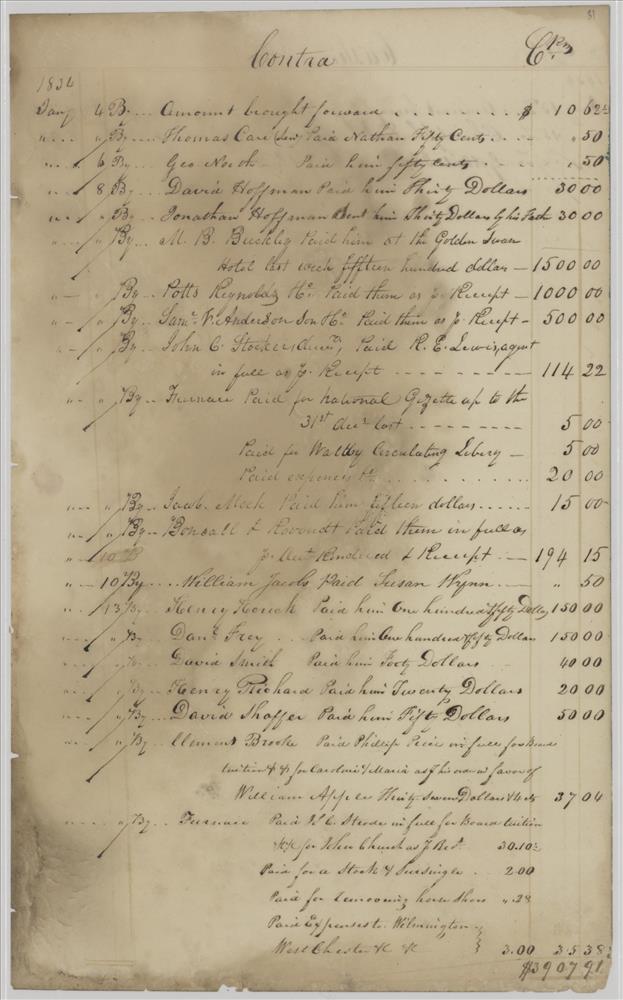 81
Contra Crs
1834
Jany 4 By ... Amount brought forward $ 10 62½
" " By ... Thomas Care (dew) Paid Nathan Fifty Cents " 50
" 6 By Geo North Paid him fifty cents " 50
" 8 By David Hoffman Paid him Thirty Dollars 30 00
" " By Jonathan Hoffman Sent him Thirty Dollars by his Fathr 30 00
" " By M. B. Buckley Paid him at the Golden Swan
Hotel last week fifteen hundred dollars 1500 00
" " By Potts Reynolds & Co Paid them as p. Receipt 1000 00
" " By Saml. V. Anderson Son & Co Paid them as p. Receipt 500 00
" " By John C. Stocker, Paid R. E. Lewis, agent
in full as p. Receipt 114 22
" " By Furnace Paid for national Gazette up to the
31st decr last 5 00
Paid for Circulating Libery 5 00
Paid expences &c 20 00
" " By Jacob Mock Paid him fifteen dollars 15 00
" " By Bonsall & Paid them in full as
" 10 By p. Acct Rendered & Receipt 194 15
" 10 By William Jacobs Paid Susan Wynn " 50
" 13 By Henry Houck Paid him One hundred & fifty Dollars 150 00
" " By Danl. Frey Paid him One hundred & fifty Dollars 150 00
" " By David Smith Paid him Forty Dollars 40 00
" " By Henry Richard Paid him Twenty Dollars 20 00
" " By David Shaffer Paid him Fifty Dollars 50 00
" " By Clement Brooke Paid Phillip Price in full for Board
tuition & c for Caroline & Maria as p his order in favor of
William Apple Thirty Seven Dollars & 4 cts 37 04
" " By Furnace Paid J. C. Strode in full for Board tuition
&c for John Church as p Rect. 30.10½
Paid for a Stock & Sursingle 2.00
Paid for removing horse Shoes ".28
Paid Expenses to Wilmington
West Chester &c &c 3.00 35 38½
$3907 91